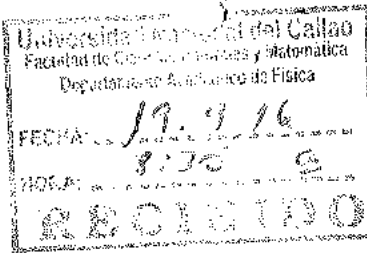 Universidad Nacional del Callao
Facultad de Ciencias Naturales y Matemática
Departamento Académico de Física
FECHA:
HORA:
RECIBIDO